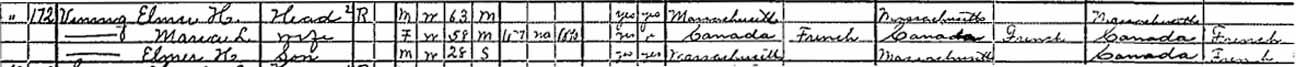 " 172 Vining Elmer H. Head R M W 63 M yes yes Massachusetts Massachusetts Massachusetts
—— L. Wife F W 58 M na yes Canada French Canada French Canada French
—— Elmer H. Son M W 28 S yes yes Massachusetts Massachusetts Canada French